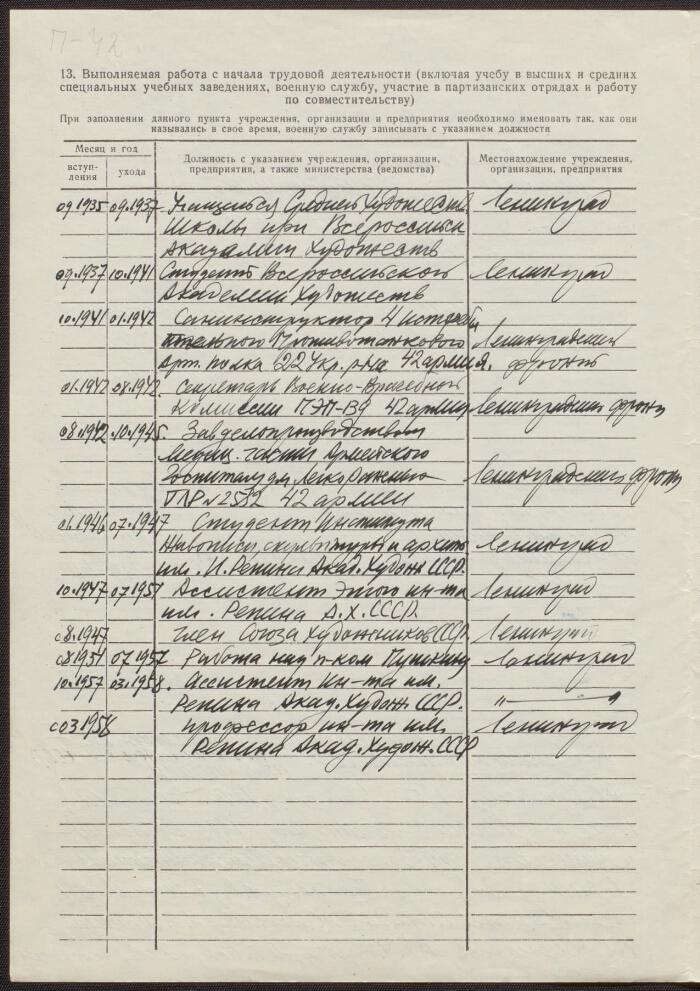 П-42
13. Выполняемая работа с начала трудовой деятельности (включая учебу в высших и средних
специальных учебных заведениях, военную службу, участие в партизанских отрядах и работу
по совместительству)
При заполнении данного пункта учреждения, организации и предприятия необходимо именовать так, как они
назывались в свое время, военную службу записывать с указанием должности
Месяц и год
вступ-
ления
ухода
Должность с указанием учреждения, организации,
предприятия, а также министерства (ведомства)
Местонахождение учреждения,
организации, предприятия
09.1935 09.1937 Учащийся Средней Художеств. Ленинград
Школы при Всероссийск
Академии Художеств
09.1937 10.1941 Студент Всероссийской Ленинград
Академии Художеств
10.1941 01.1942 Санинструктор 4 истреби
тельного Противотанкового Ленинградский
Арт. полка 22 Укр. р-на 42 армия. фронт
01.1942 08.1942. Секретарь Военно-Врачебной
Комиссии ПЭП-139 42 армии Ленинградский фронт
08.1942 10.1945. Завделопроизводством
Медиц. части Армейского
Госпиталя для Легко Раненых Ленинградский фронт
ГЛР №2532 42 армии
01.1946 07.1947 Студент Института
Живописи, скульптуры и архит. Ленинград
им. И. Репина Акад. Худож СССР.
10.1947 07.1951 Ассистент Этого ин-та Ленинград
им. Репина А.Х. СССР.
с 8.1947 член Союза Художников СССР Ленинград
08.1951 07.1957 Работа над п-ком Пушкину Ленинград
10.1957 03.1958. Ассистент ин-та им. " — "
Репина Акад. Худож. СССР.
с 03.1958 профессор ин-та им. Ленинград
Репина Акад. Худож. СССР